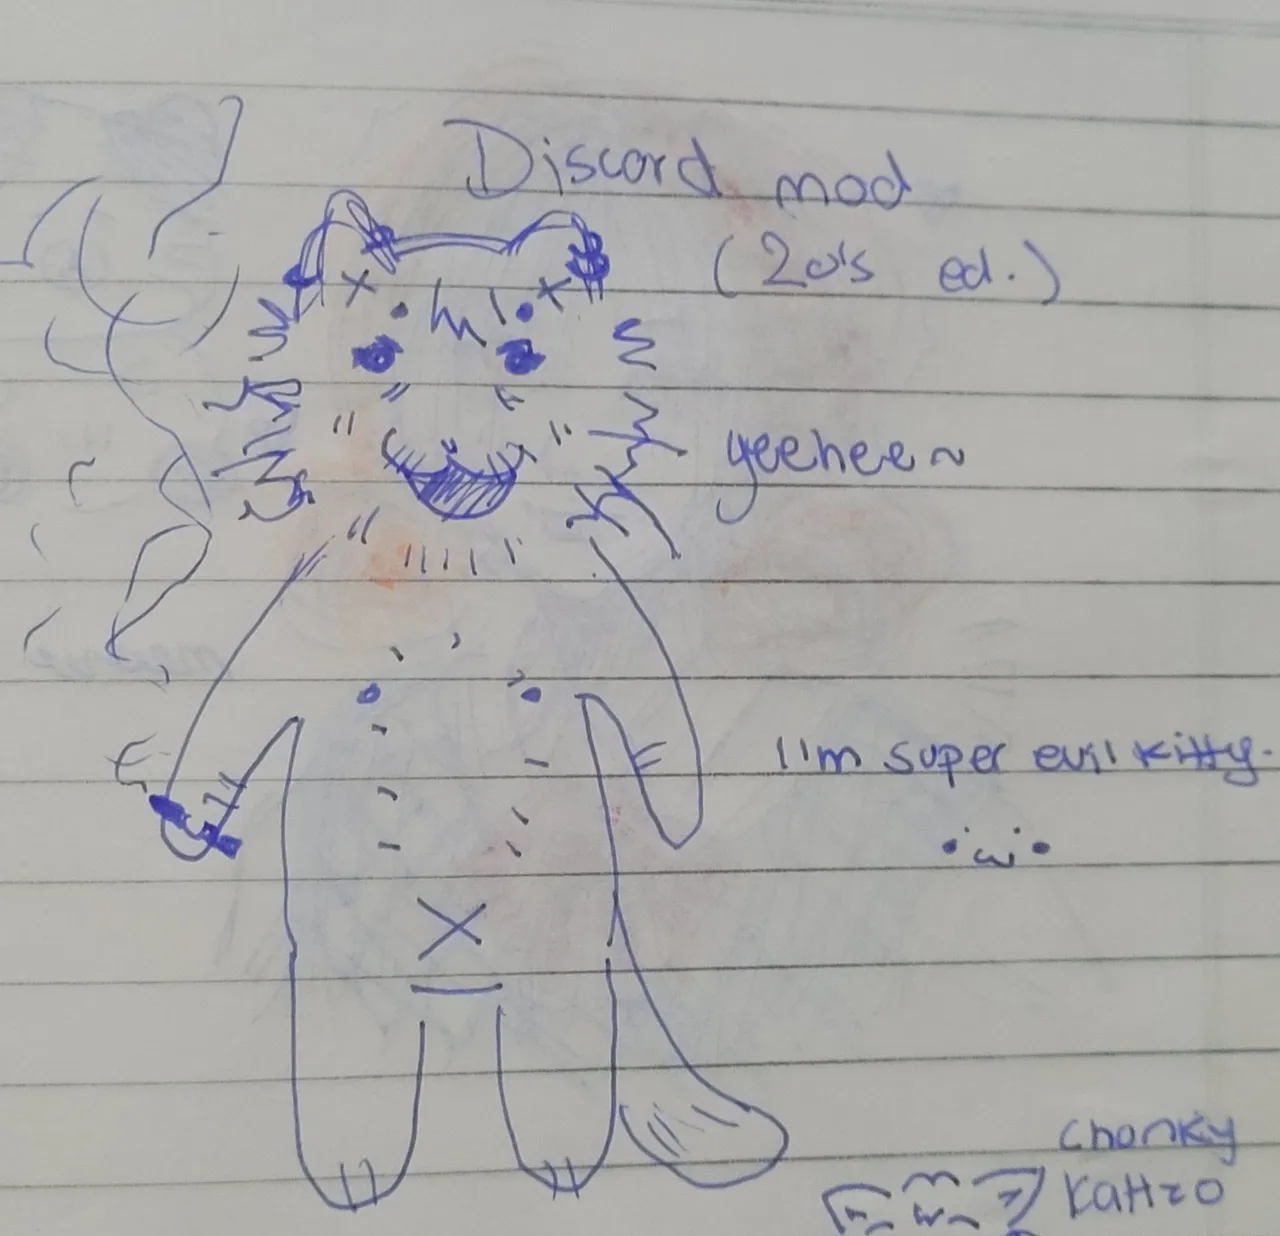 Discord mod
(20's ed.)
yeehee~
I'm super evil kitty.
chonky